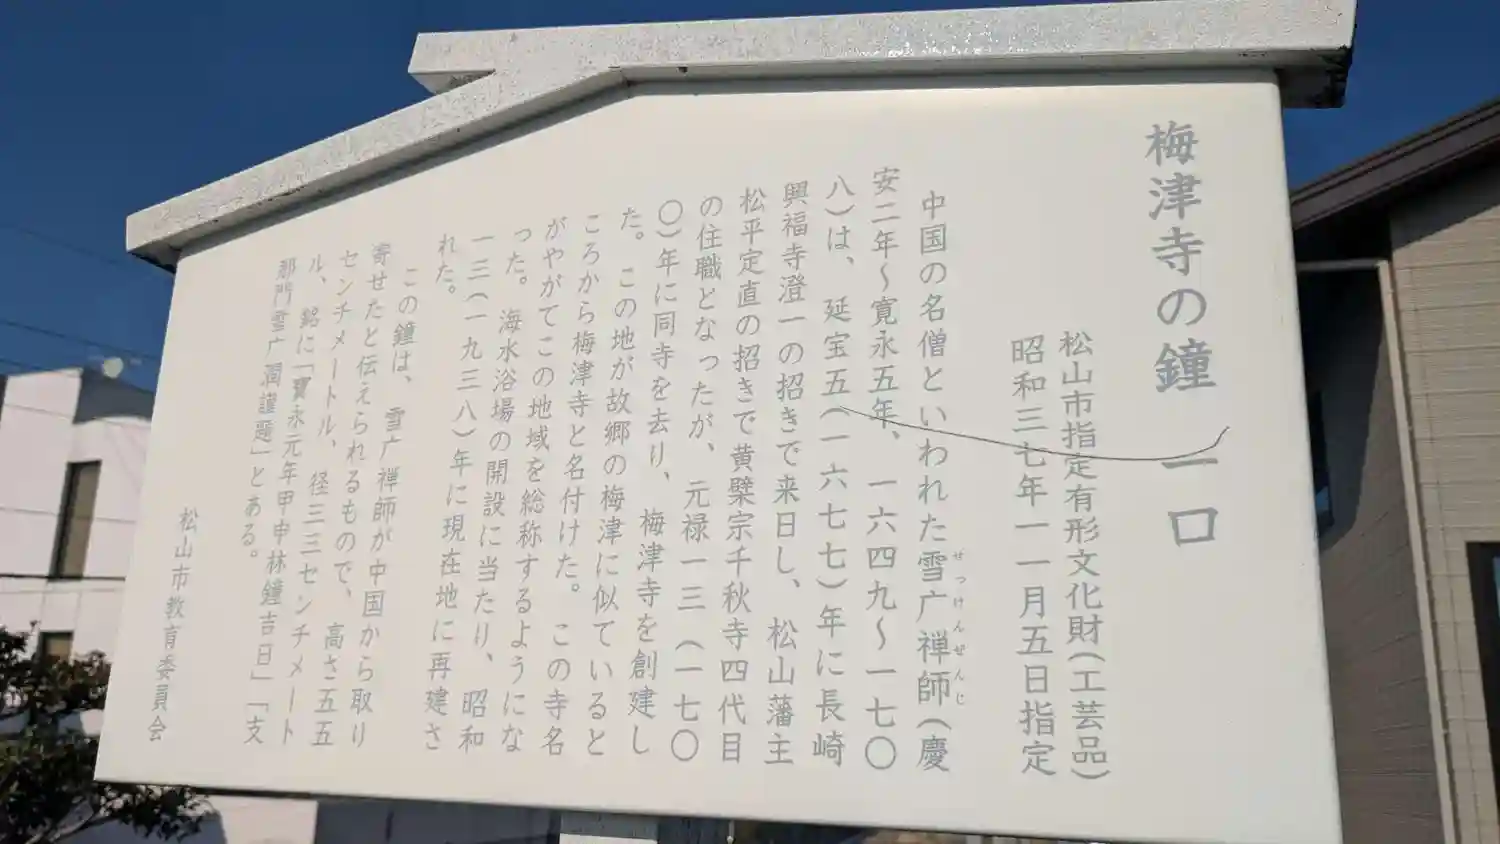 梅津寺の鐘 一口
松山市指定有形文化財(工芸品)
昭和三七年一一月五日指定
中国の名僧といわれた雪广禅師(慶
せっけんぜんじ
安二年～寛永五年、一六四九～一七〇
八)は、延宝五(一六七七)年に長崎
興福寺澄一の招きで来日し、松山藩主
松平定直の招きで黄檗宗千秋寺四代目
の住職となったが、元禄一三(一七〇
〇)年に同寺を去り、梅津寺を創建し
た。この地が故郷の梅津に似ていると
ころから梅津寺と名付けた。この寺名
がやがてこの地域を総称するようにな
った。海水浴場の開設に当たり、昭和
一三(一九三八)年に現在地に再建さ
れた。
この鐘は、雪广禅師が中国から取り
寄せたと伝えられるもので、高さ五五
センチメートル、径三三センチメート
ル、銘に「寳永元年甲申林鐘吉日」「支
那門雪广潤謹題」とある。
松山市教育委員会